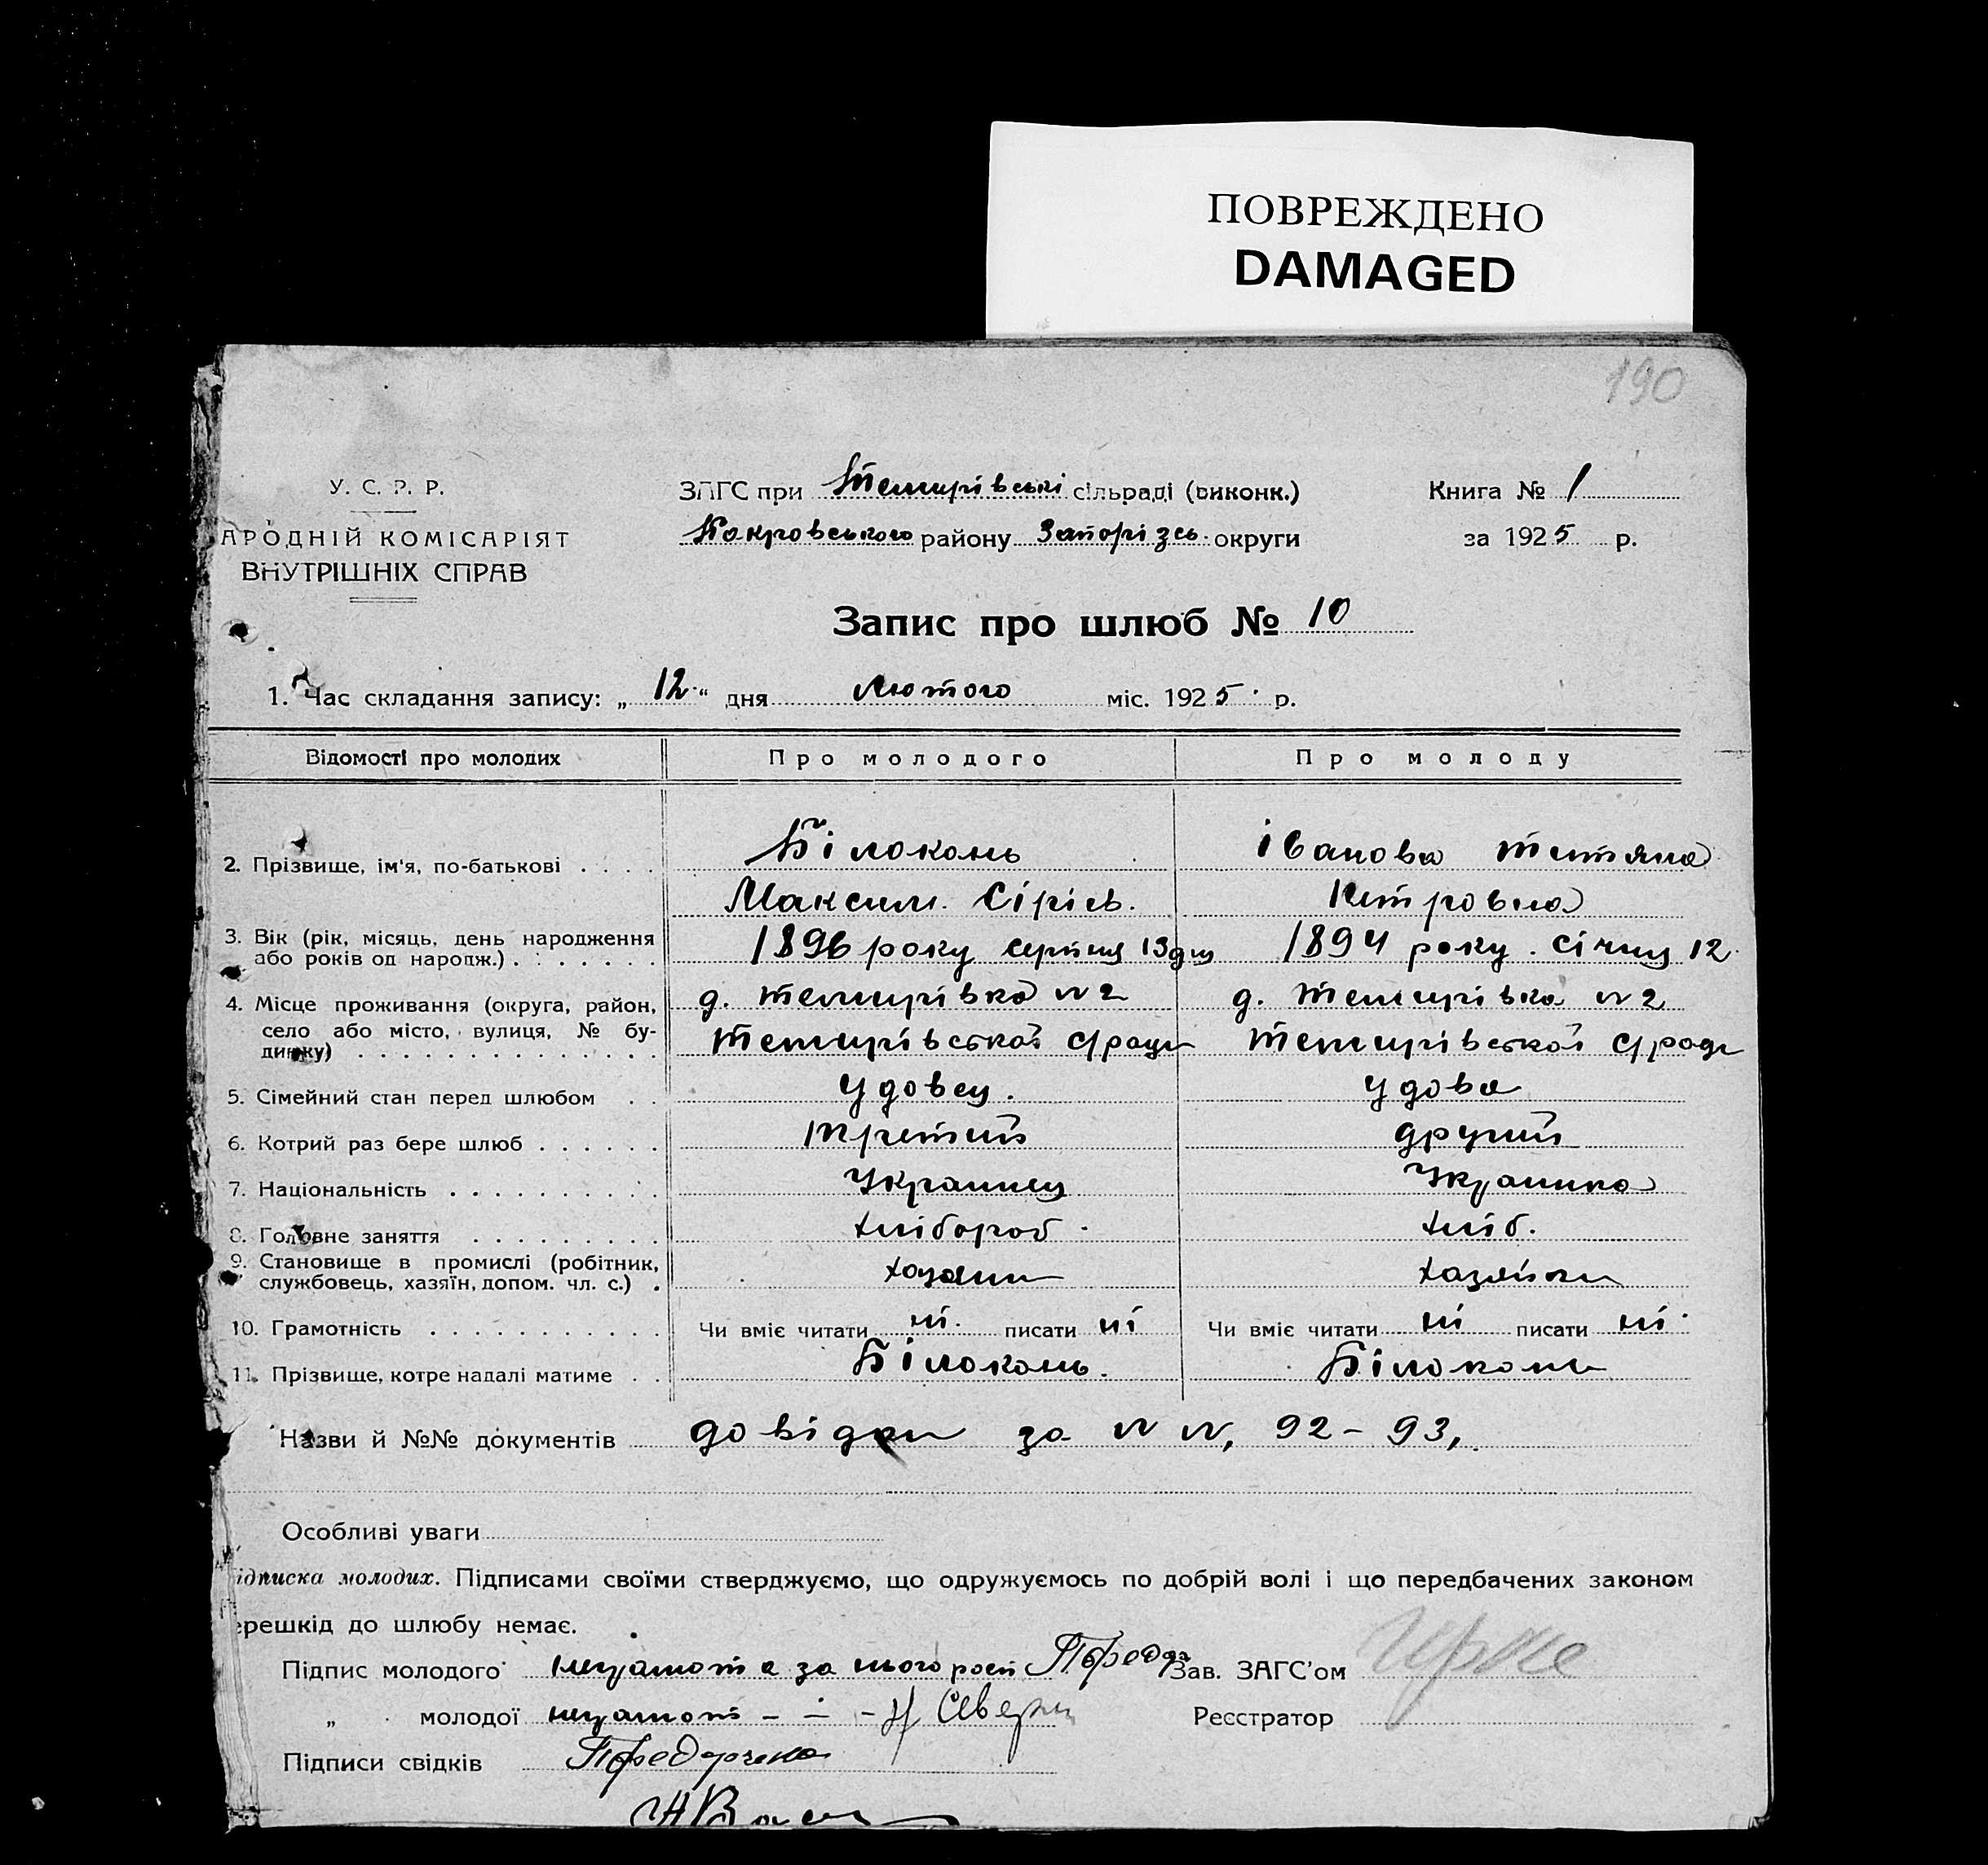 ПОВРЕЖДЕНО
DAMAGED
190
У. С. Р. Р.
АРОДНІЙ КОМІСАРІЯТ
ВНУТРІШНІХ СПРАВ
ЗАГС при Темирівські сільраді (виконк.)
Покровського району Запорізь. округи
Книга № 1
за 1925 р.
Запис про шлюб № 10
1. Час складання запису: „ 12 “ дня лютого міс. 1925 р.
Відомості про молодих Про молодого Про молоду
2. Прізвище, ім'я, по-батькові . . . . Білоконь Іванова Тетяна
Максим. Сірієв. Петровна
3. Вік (рік, місяць, день народження 1896 року серпня 13 дня 1894 року. січня 12.
або років од народж.) . . . . . . .
4. Місце проживання (округа, район, д. Темирівка №2 д. Темирівка №2
село або місто, вулиця, № бу-
динку) . . . . . . . . . . . . . . Темирівської с/ради Темирівської с/ради
5. Сімейний стан перед шлюбом . . Удовец. Удова
6. Котрий раз бере шлюб . . . . . . третий другий
7. Національність . . . . . . . . . . Украинец Украинка
8. Головне заняття . . . . . . . . . хлібороб. хліб.
9. Становище в промислі (робітник, хазяин хазяйка
службовець, хазяїн, допом. чл. с.) .
10. Грамотність . . . . . . . . . . . Чи вміє читати ні. писати ні Чи вміє читати ні писати ні.
11. Прізвище, котре надалі матиме . . Білоконь. Білоконь
Назви й №№ документів довідки за №№, 92-93,
Особливі уваги
ідписка молодих. Підписами своїми стверджуємо, що одружуємось по добрій волі і що передбачених законом
ерешкід до шлюбу немає.
Підпис молодого неграмот а за нього росп Зав. ЗАГС'ом
„ молодої неграмот - - -
Реєстратор
Підписи свідків